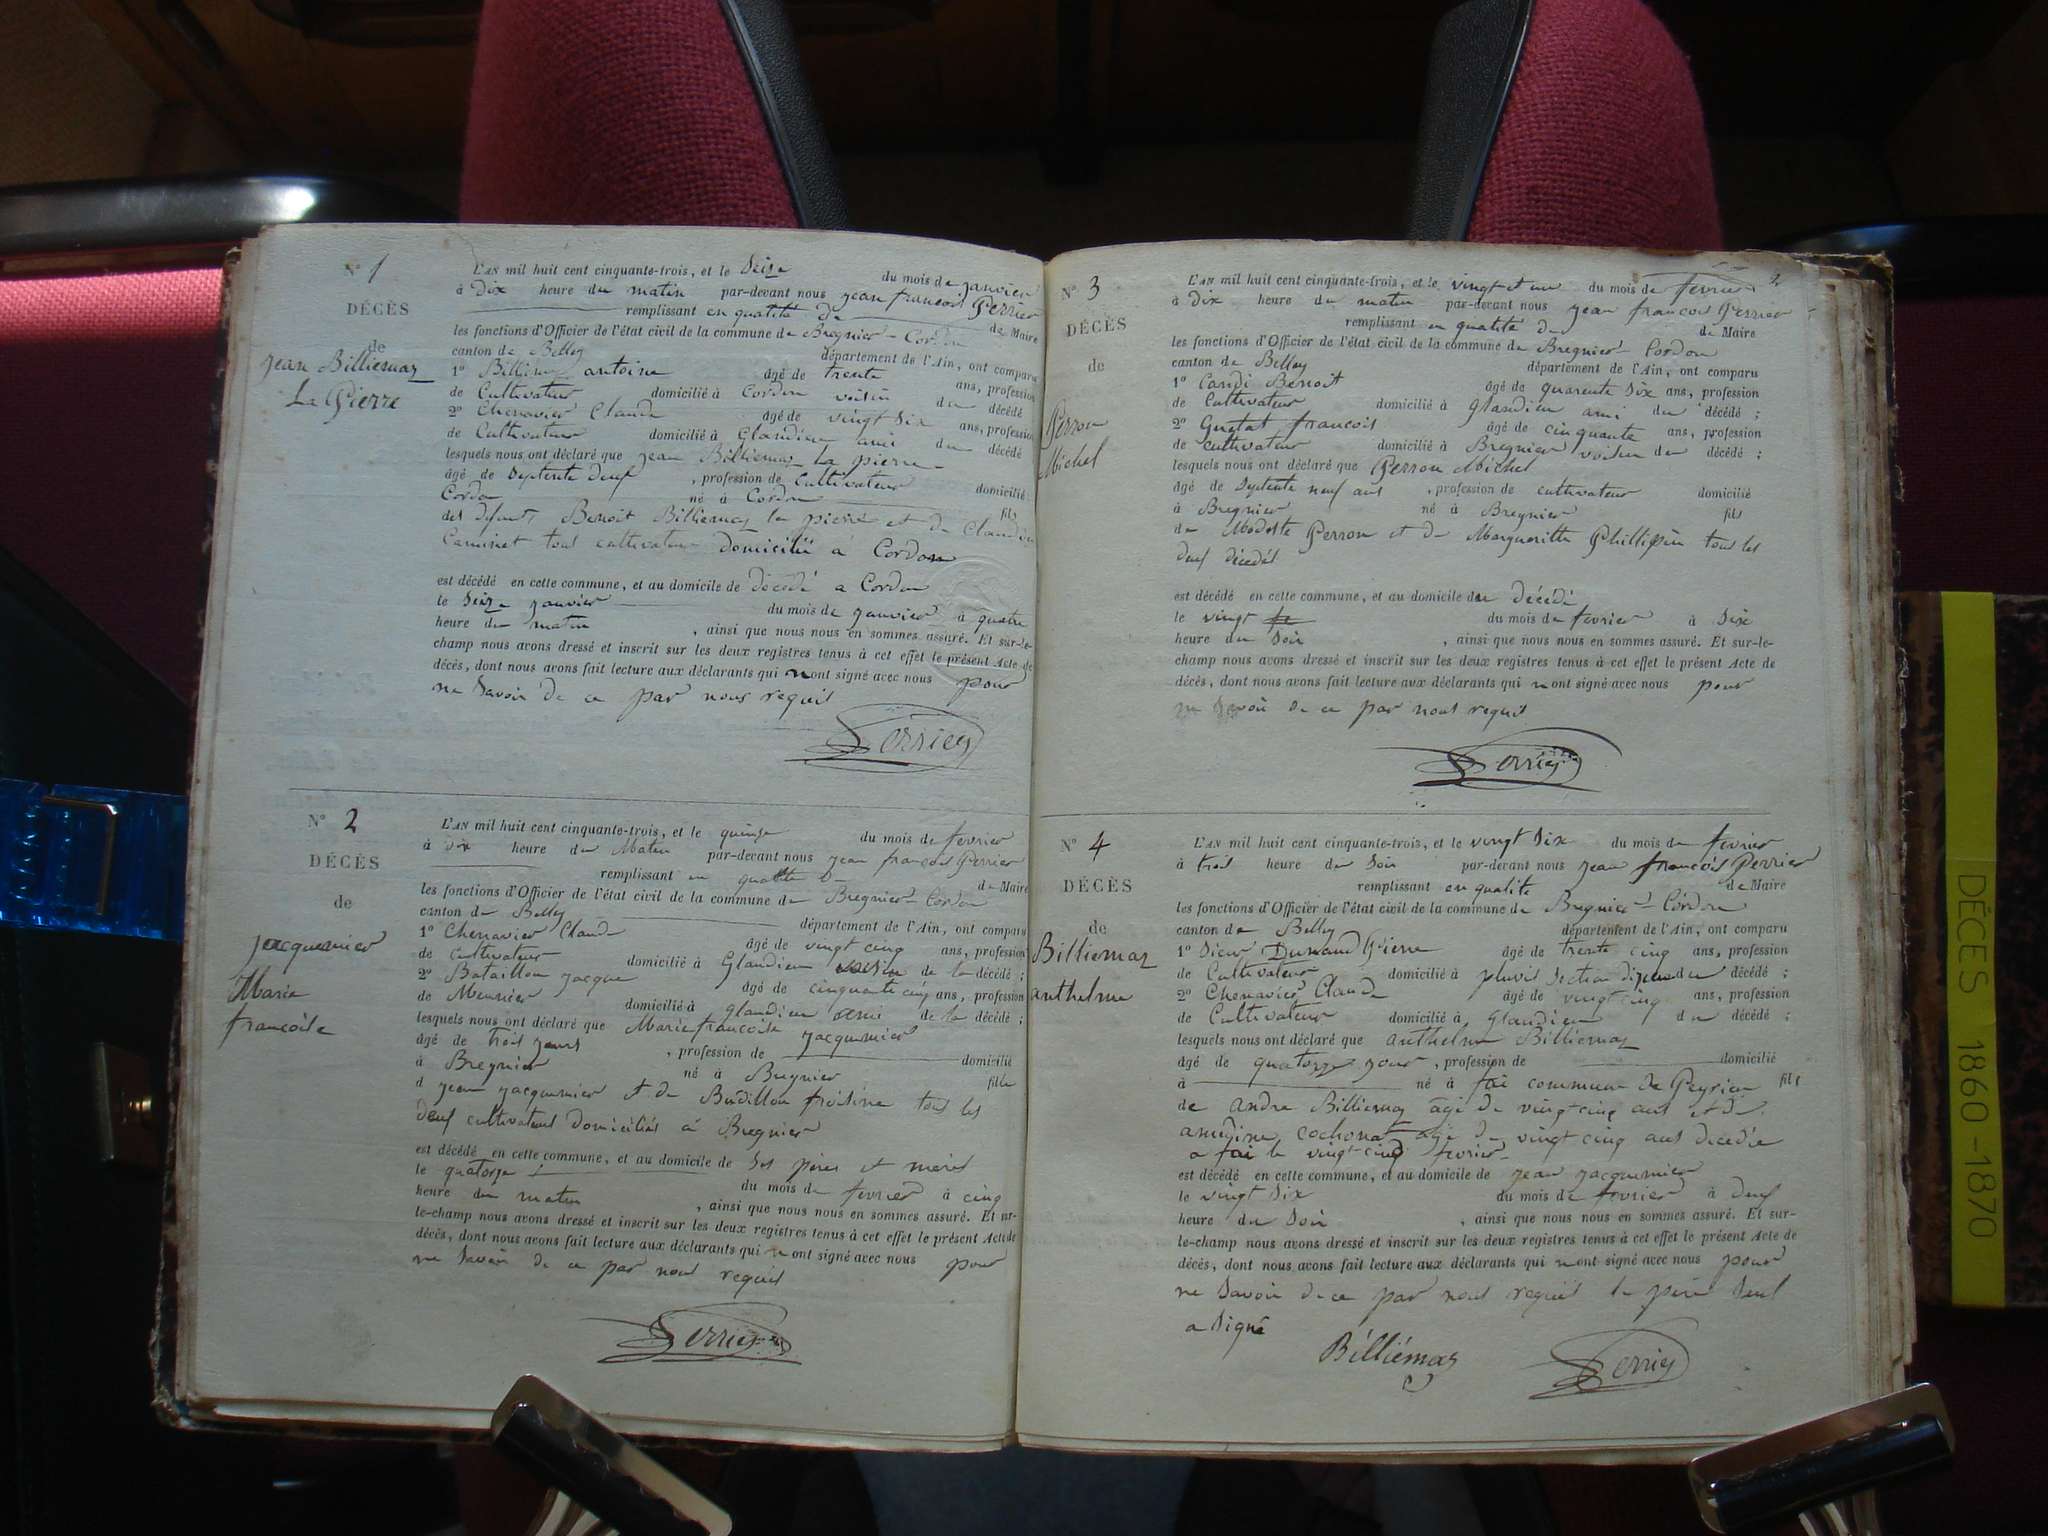 N° 1
DÉCÈS
de
Jean Billiemaz
La Pierre
L'AN mil huit cent cinquante-trois, et le Seize du mois de janvier
à Dix heure du matin par-devant nous jean francois Perrier
remplissant en qualité de de Maire
les fonctions d'Officier de l'état civil de la commune de Bregnier-Cordon
canton de Belley département de l'Ain, ont comparu
1° Billiemaz antoine âgé de trente ans, profession
de Cultivateur domicilié à Cordon voisin du décédé
2° Chenavier Claude âgé de vingt Six ans, profession
de Cultivateur domicilié à Glandieu ami du décédé
lesquels nous ont déclaré que jean Billiemaz La pierre
âgé de Septente deux, profession de Cultivateur domicilié
Cordon né à Cordon fils
des defunts Benoit Billiemaz la pierre et de Claudine
Caminet tous cultivateur domicilié à Cordon
est décédé en cette commune, et au domicile de décédé a Cordon
le Seize janvier du mois de janvier à quatre
heure du matin, ainsi que nous nous en sommes assuré. Et sur-le-
champ nous avons dressé et inscrit sur les deux registres tenus à cet effet le présent Acte de
décès, dont nous avons fait lecture aux déclarants qui nont signé avec nous pour
ne Savoir de ce par nous requis
Perrier
N° 2
DÉCÈS
de
jacquemier
Marie
francoise
L'AN mil huit cent cinquante-trois, et le quinze du mois de fevrier
à dix heure du Matin par-devant nous jean francois Perrier
remplissant en qualité de de Maire
les fonctions d'Officier de l'état civil de la commune de Bregnier-Cordon
canton de Belley département de l'Ain, ont comparu
1° Chenavier Claude âgé de vingt cinq ans, profession
de cultivateur domicilié à Glandieu voisin de la décédé ;
2° Bataillon jacque âgé de cinquante cinq ans, profession
de Meunier domicilié à glandieu ami de la décédé ;
lesquels nous ont déclaré que Marie francoise jacquemier
âgé de trois jours, profession de domicilié
à Bregnier né à Bregnier fille
d jean jacquemier et de Budillon frosine tous les
deux cultivateurs domiciliés à Bregnier
est décédé en cette commune, et au domicile de Ses pères et mères
le quatorze du mois de fevrier à cinq
heure du matin, ainsi que nous nous en sommes assuré. Et sur-
le-champ nous avons dressé et inscrit sur les deux registres tenus à cet effet le présent Acte de
décès, dont nous avons fait lecture aux déclarants qui nont signé avec nous pour
ne Savoir de ce par nous requis
Perrier
2
N° 3
DÉCÈS
de
Perron
Michel
L'AN mil huit cent cinquante-trois, et le vingt et un du mois de fevrier
à Dix heure du matin par-devant nous jean francois Perrier
remplissant en qualité de de Maire
les fonctions d'Officier de l'état civil de la commune de Bregnier-Cordon
canton de Belley département de l'Ain, ont comparu
1° Candi Benoit âgé de quarente Six ans, profession
de Cultivateur domicilié à glandieu ami du décédé ;
2° Guetat francois âgé de cinquante ans, profession
de cultivateur domicilié à Bregnier voisin du décédé ;
lesquels nous ont déclaré que Perron Michel
âgé de Septente neuf ans, profession de cultivateur domicilié
à Bregnier né à Bregnier fils
de Modeste Perron et de Margueritte Phillipin tous les
deux décédés
est décédé en cette commune, et au domicile du décédé
le vingt du mois de fevrier à Six
heure du Soir, ainsi que nous nous en sommes assuré. Et sur-le-
champ nous avons dressé et inscrit sur les deux registres tenus à cet effet le présent Acte de
décès, dont nous avons fait lecture aux déclarants qui nont signé avec nous pour
ne Savoir de ce par nous requis
Perrier
N° 4
DÉCÈS
de
Billiemaz
anthelme
L'AN mil huit cent cinquante-trois, et le vingt Six du mois de fevrier
à trois heure du Soir par-devant nous jean francois Perrier
remplissant en qualité de Maire
les fonctions d'Officier de l'état civil de la commune de Bregnier-Cordon
canton de Belley département de l'Ain, ont comparu
1° Sieur Dunand Pierre âgé de trente cinq ans, profession
de Cultivateur domicilié à du décédé ;
2° Chenavier Claude âgé de vingt cinq ans, profession
de Cultivateur domicilié à Glandieu du décédé ;
lesquels nous ont déclaré que anthelme Billiemaz
âgé de quatorze jour, profession de domicilié
à né à fai commune de Peyrieu fils
de andre Billiemaz âgé de vingt cinq ans et de
cochonat âgé de vingt cinq ans decedée
a fai le vingt cinq fevrier
est décédé en cette commune, et au domicile de jean jacquemier
le vingt Six du mois de fevrier à deux
heure du Soir, ainsi que nous nous en sommes assuré. Et sur-
le-champ nous avons dressé et inscrit sur les deux registres tenus à cet effet le présent Acte de
décès, dont nous avons fait lecture aux déclarants qui nont signé avec nous pour
ne Savoir de ce par nous requis le père Seul
a Signé
Billiémaz
Perrier
DÉCES 1860-1870